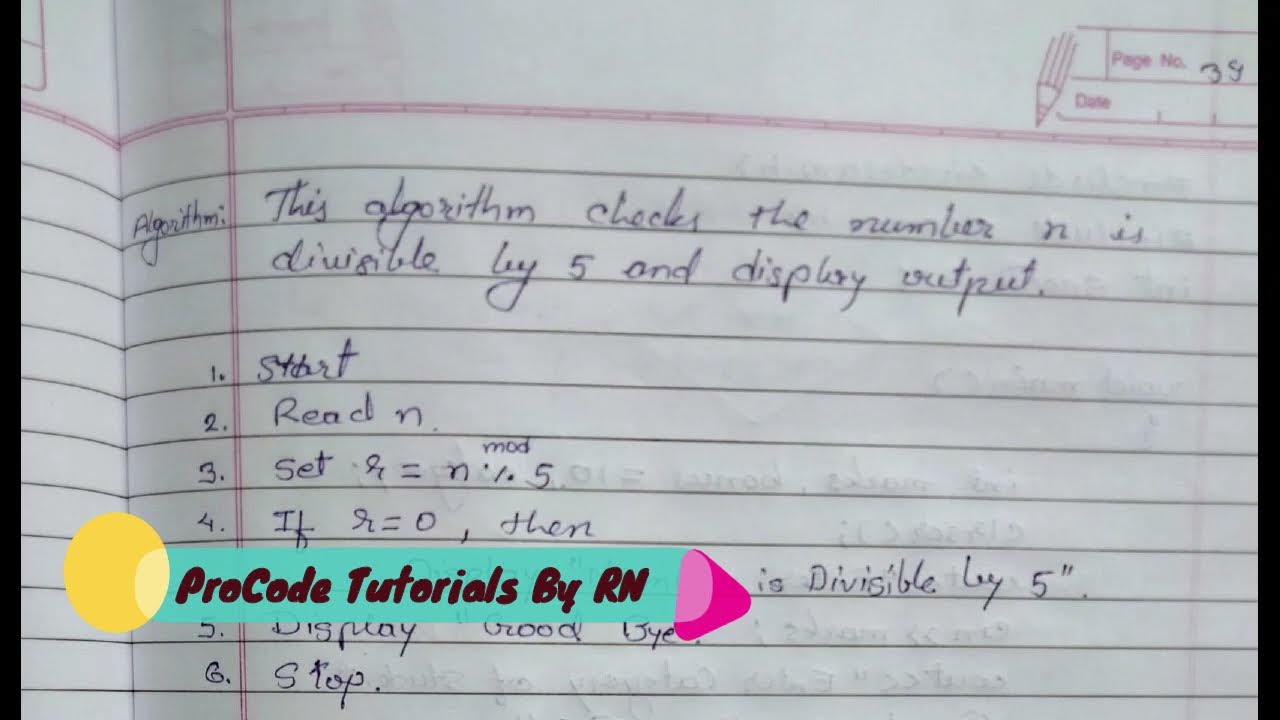 Page No. 39
Date
Algorithm: This algorithm checks the number n is
divisible by 5 and display output.
1. Start
2. Read n.
mod
3. Set r = n % 5
4. If r = 0, then
is Divisible by 5".
ProCode Tutorials By RN
5. Display "Good Bye".
6. Stop.